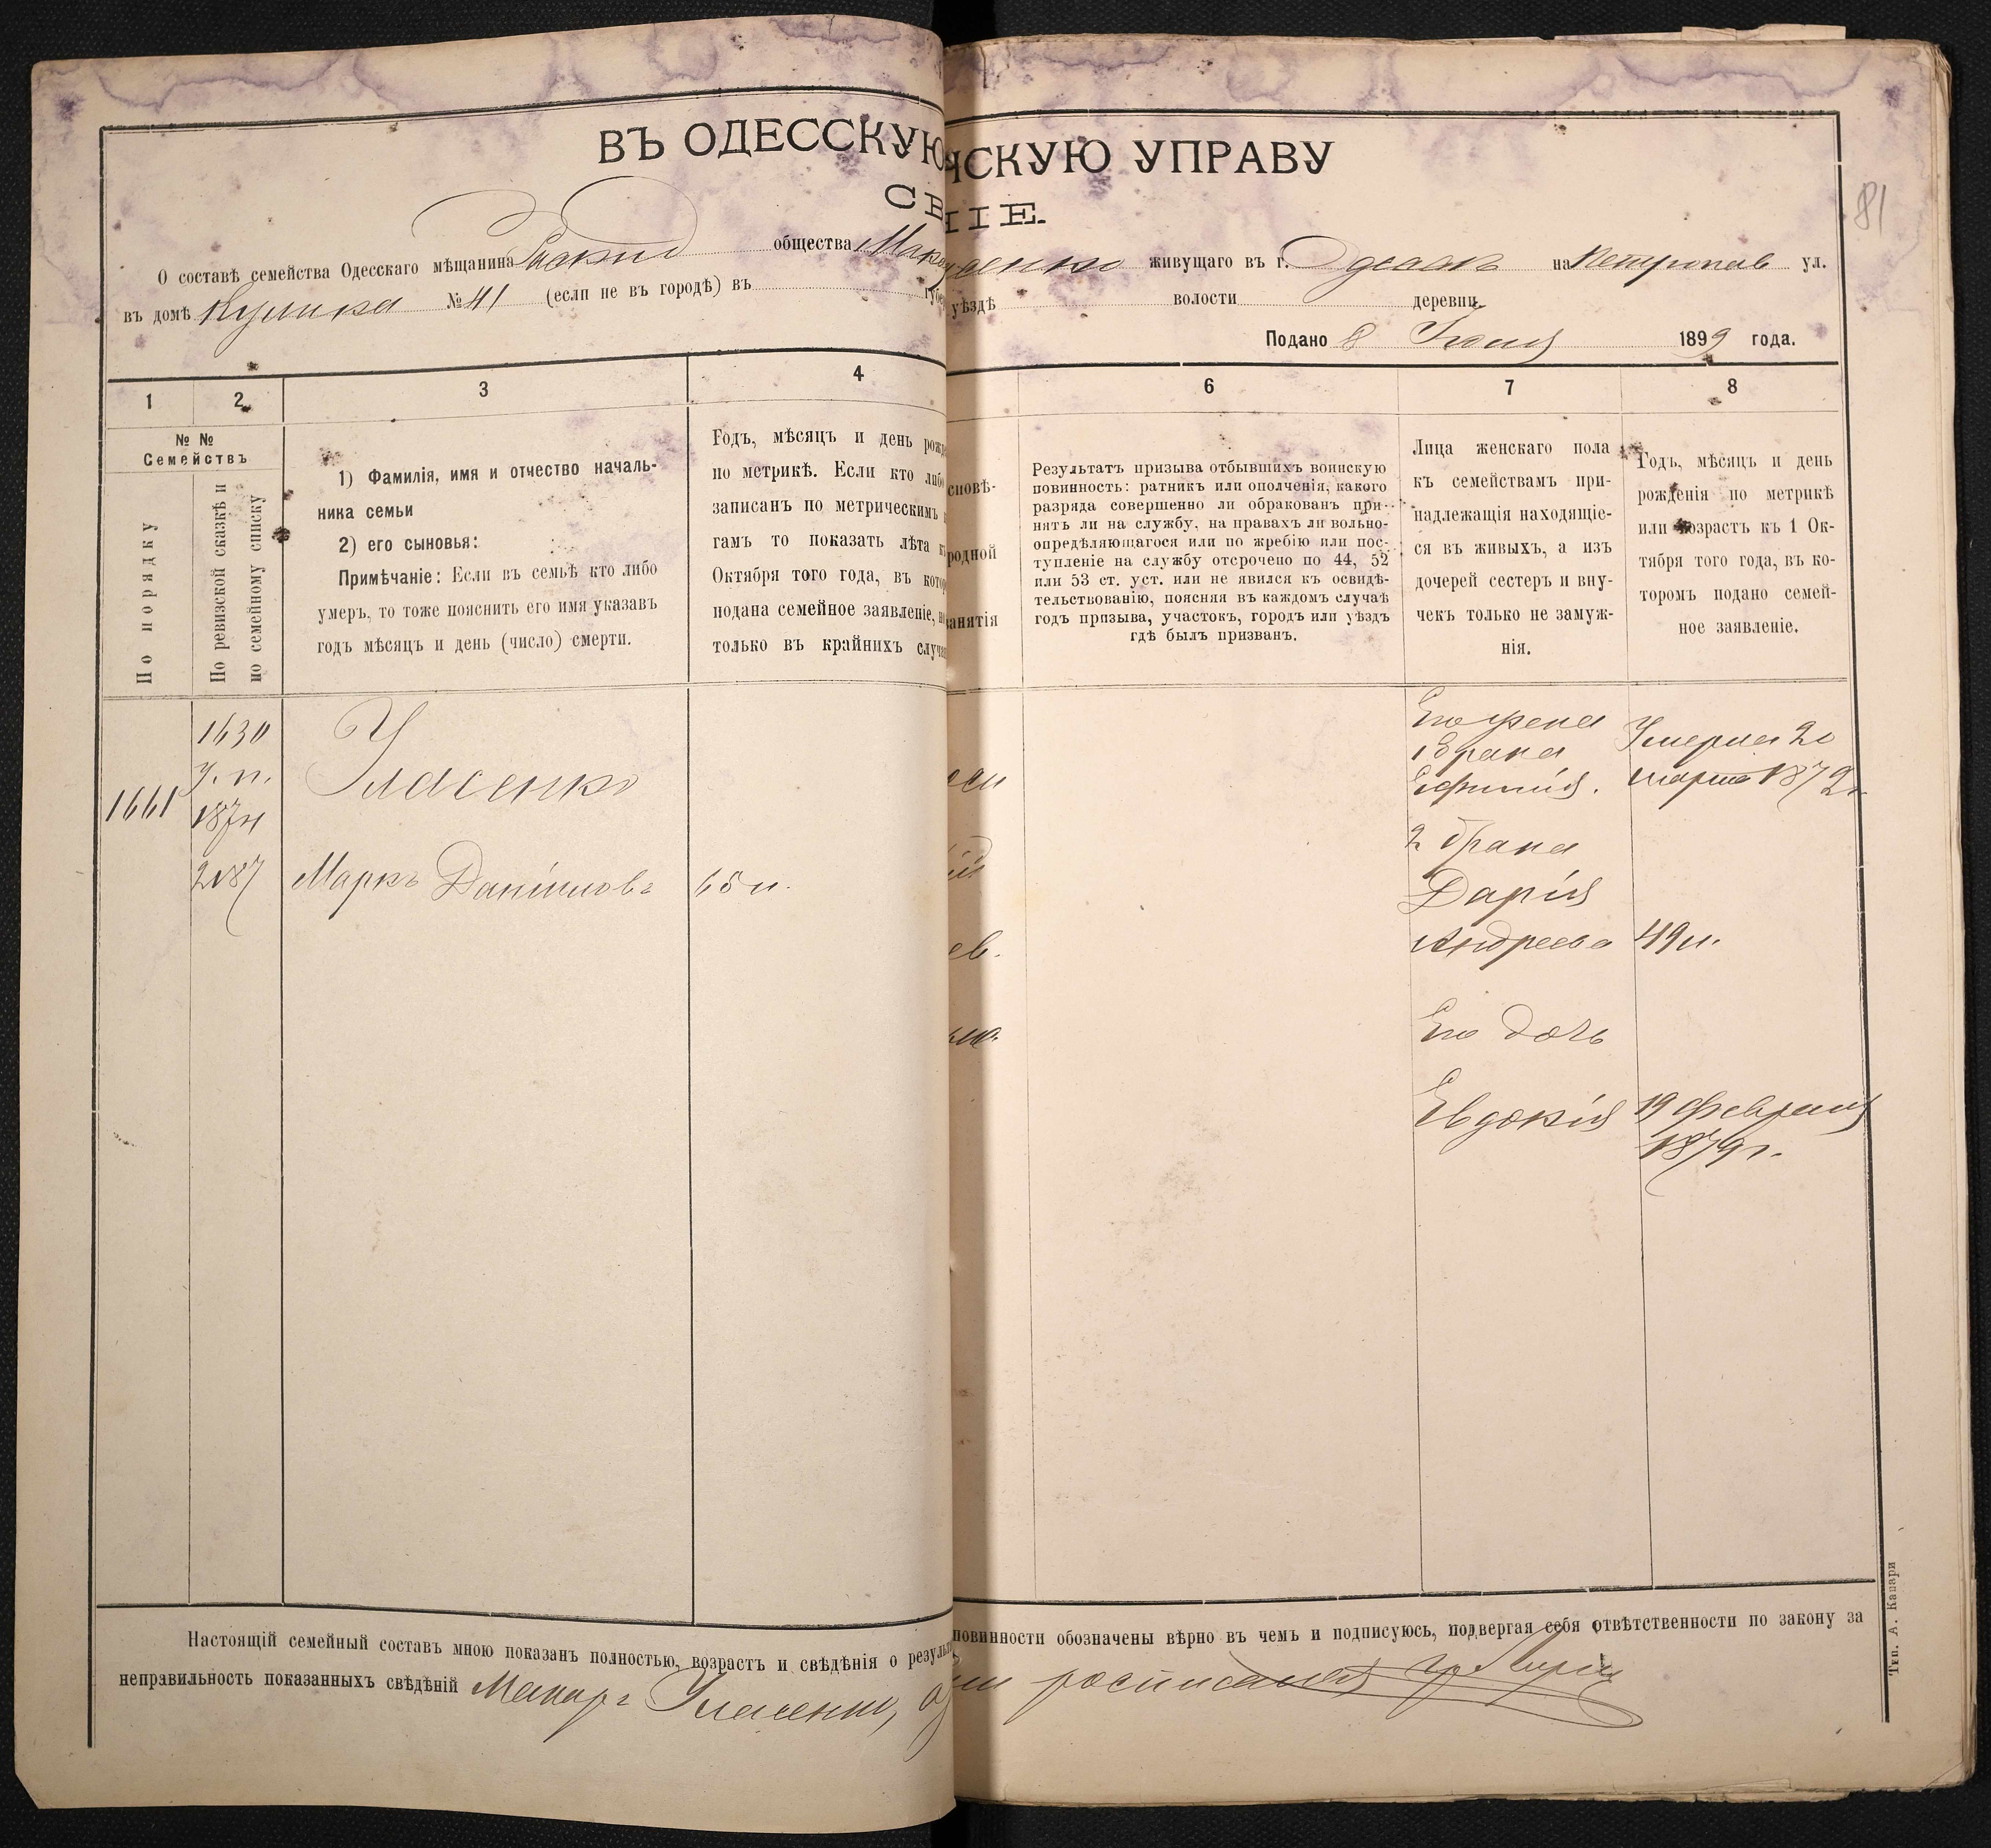 ВЪ ОДЕССКУЮ
ЧСКУЮ УПРАВУ
СВ
НІЕ.
81
О составѣ семейства Одесскаго мѣщанина общества
енко живущаго въ г. Одессѣ на Петропав ул.
въ домѣ Кулика № 41 (если не въ городѣ) въ губе
уѣздѣ волости деревни
Подано 8 Іюля 1899 года.
1
2
3
4
6
7
8
№ №
Семействъ
По порядку
По ревизской сказкѣ и
по семейному списку
1) Фамилія, имя и отчество началь-
ника семьи
2) его сыновья:
Примѣчаніе: Если въ семьѣ кто либо
умеръ, то тоже пояснить его имя указавъ
годъ мѣсяцъ и день (число) смерти.
Годъ, мѣсяцъ и день рожд
по метрикѣ. Если кто либо
записанъ по метрическимъ
гамъ то показать лѣта к
Октября того года, въ кото
подана семейное заявленіе, но
только въ крайнихъ случа
сповѣ-
родной
занятія
Результатъ призыва отбывшихъ воинскую
повинность: ратникъ или ополченія, какого
разряда совершенно ли обракованъ при-
нятъ ли на службу, на правахъ ли вольно-
опредѣляющагося или по жребію или пос-
тупленіе на службу отсрочено по 44, 52
или 53 ст. уст. или не явился къ освидѣ-
тельствованію, поясняя въ каждомъ случаѣ
годъ призыва, участокъ, городъ или уѣздъ
гдѣ былъ призванъ.
Лица женскаго пола
къ семействамъ при-
надлежащія находящіе-
ся въ живыхъ, а изъ
дочерей сестеръ и вну-
чекъ только не замуж-
нія.
Годъ, мѣсяцъ и день
рожденія по метрикѣ
или возрастъ къ 1 Ок-
тября того года, въ ко-
торомъ подано семей-
ное заявленіе.
1661
1630
у. п.
1874
2187
Уласенко
Маркъ Даниловъ
65 л.
Его жена
1 брака
Ефимія.
Умерла 20
марта 1872 г.
2 брака
Дарія
Андреева
49 л.
Его дочь
Евдокія
19 Февраля
1879 г.
Настоящій семейный составъ мною показанъ полностью, возрастъ и свѣдѣнія о резуль
повинности обозначены вѣрно въ чемъ и подписуюсь, подвергая себя отвѣтственности по закону за
неправильность показанныхъ свѣдѣній Макаръ Уласенко,
росписался
Тип. А. Капари